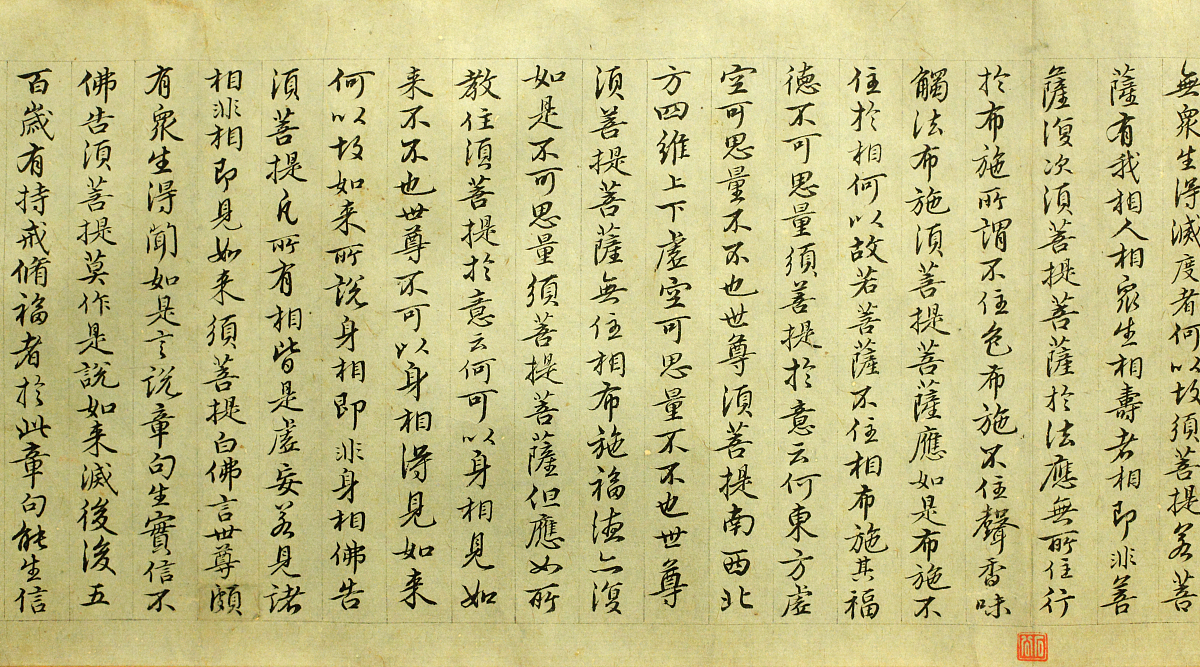 無衆生得滅度者何以故須菩提若菩
薩有我相人相衆生相壽者相即非菩
薩復次須菩提菩薩於法應無所住行
於布施所謂不住色布施不住聲香味
觸法布施須菩提菩薩應如是布施不
住於相何以故若菩薩不住相布施其福
德不可思量須菩提於意云何東方虛
空可思量不不也世尊須菩提南西北
方四維上下虛空可思量不不也世尊
須菩提菩薩無住相布施福德亦復
如是不可思量須菩提菩薩但應如所
教住須菩提於意云何可以身相見如
来不不也世尊不可以身相得見如来
何以故如来所說身相即非身相佛告
須菩提凡所有相皆是虛妄若見諸
相非相即見如来須菩提白佛言世尊頗
有衆生得聞如是言說章句生實信不
佛告須菩提莫作是說如来滅後後五
百歲有持戒脩福者於此章句能生信